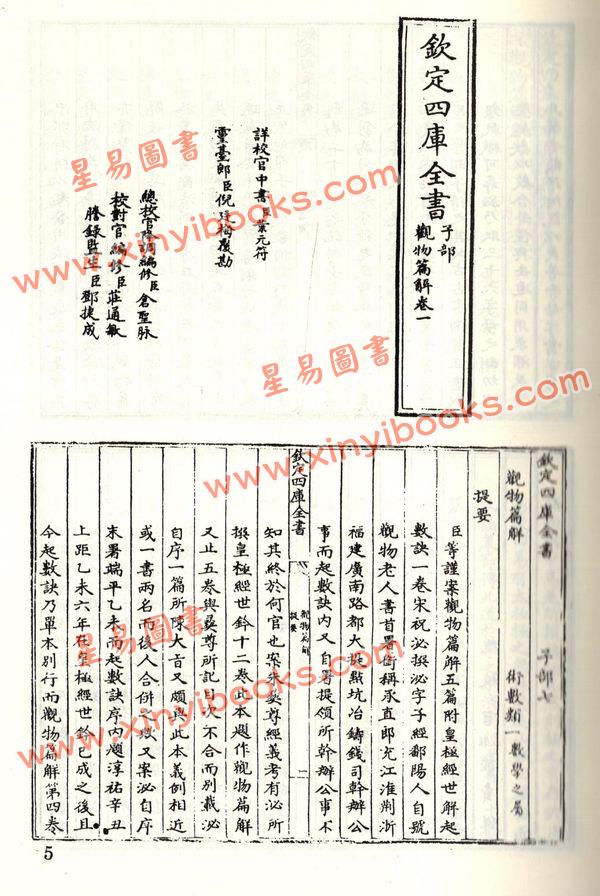 欽定四庫全書
子部
觀物篇解卷一
詳校官中書臣葉元符
靈臺郎臣倪廷梅覆勘
總校官降調編修臣倉聖脉
校對官編修臣莊通敏
謄錄監生臣鄧捷成
欽定四庫全書 子部七
觀物篇解 術數類一 數學之屬
提要
臣等謹案觀物篇解五篇附皇極經世解起
數訣一卷宋祝泌撰泌字子經鄱陽人自號
觀物老人書首署銜稱承直郎充江淮荆浙
福建廣南路都大提㸃坑冶鑄錢司幹辦公
事而起數訣内又自署提領所幹辦公事不
欽定四庫全書 觀物篇解 提要 一
知其終於何官也案朱彛尊經義考有泌所
撰皇極經世鈐十二卷此本題作觀物篇解
又止五卷與彛尊所記目次不合而別載泌
自序一篇所陳大旨又頗與此本義例相近
或一書兩名而後人合併之歟又案泌自序
末署端平乙未而起數訣序内題淳祐辛丑
上距乙未六年在皇極經世鈐已成之後且
今起數訣乃單本別行而觀物篇解第四卷
5
星易圖書
www.xinyibooks.com
星易圖書
www.xinyibooks.com
星易圖書
www.xinyibooks.com